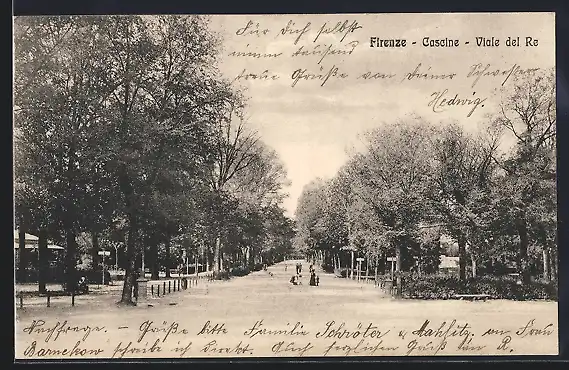 Für Dich selbst
nimm tausend
Firenze - Cascine - Viale del Re
treue Grüße von Deiner Schwester
Hedwig.
Nachfrage. - Grüße bitte Familie Schröter u. Mahlitz. an Frau
Barnekow schreibe ich direkt. Auch herzlichen Gruß von R.